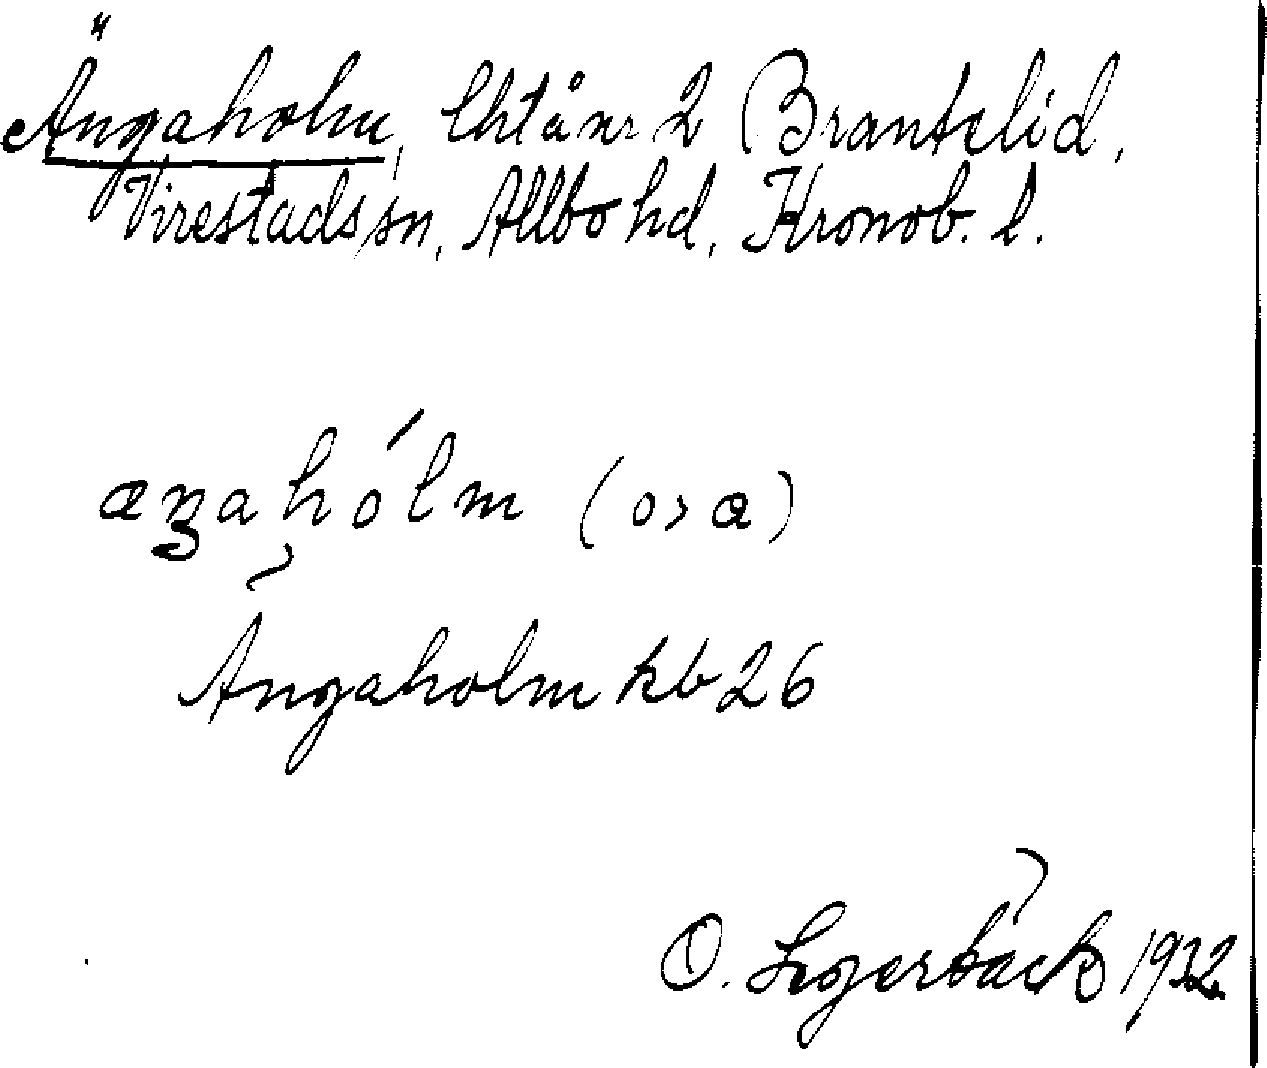 Ängaholm, lht å nr 2 Brantelid,
Virestads sn, Allbo hd, Kronob. l.
æŋahólm (o > a)
Ängaholm kb 26
O. Segerbäck 1932